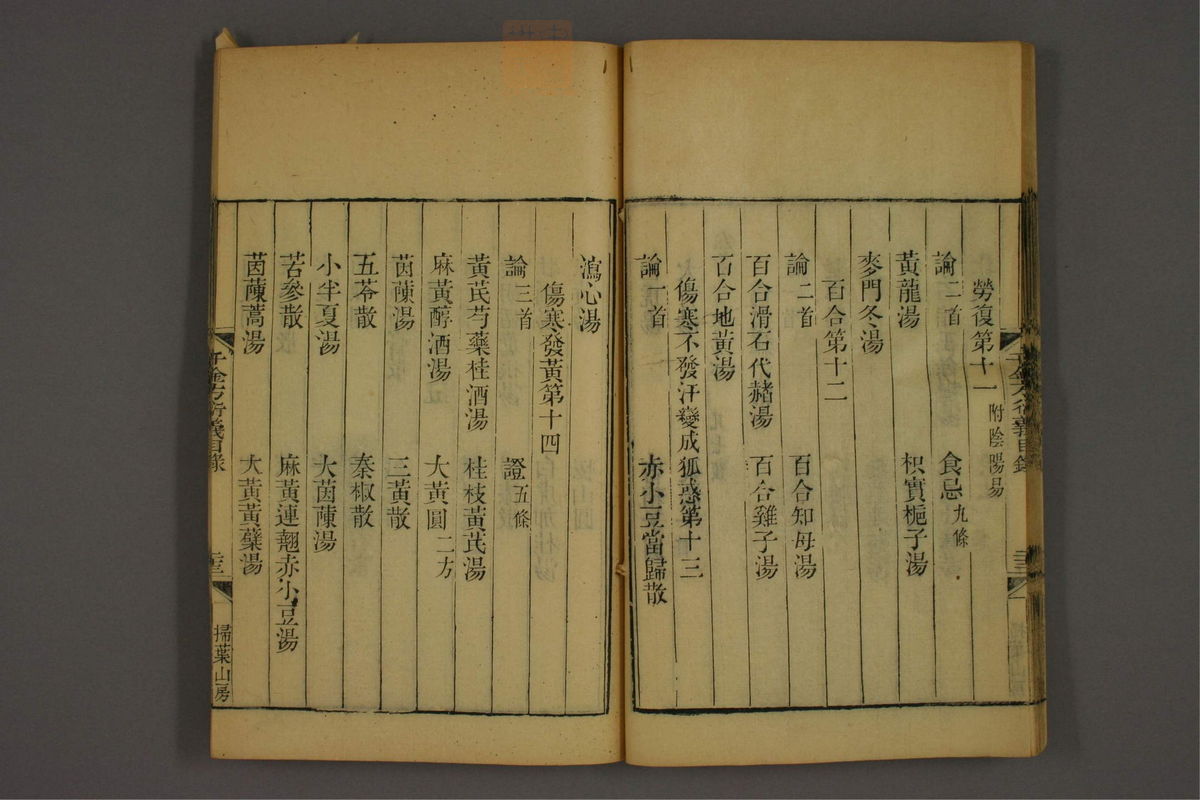 勞復第十一 附陰陽易
論二首 食忌九條
黃龍湯 枳實梔子湯
麥門冬湯
百合第十二
論二首 百合知母湯
百合滑石代赭湯 百合雞子湯
百合地黃湯
傷寒不發汗變成狐惑第十三
論一首 赤小豆當歸散
瀉心湯
傷寒發黃第十四
論三首 證五條
黃芪芍藥桂酒湯 桂枝黃芪湯
麻黃醇酒湯 大黃圓二方
茵蔯湯 三黃散
五苓散 秦椒散
小半夏湯 大茵蔯湯
苦參散 麻黃連翹赤小豆湯
茵蔯蒿湯 大黃黃蘗湯
千金方衍義目錄 掃葉山房